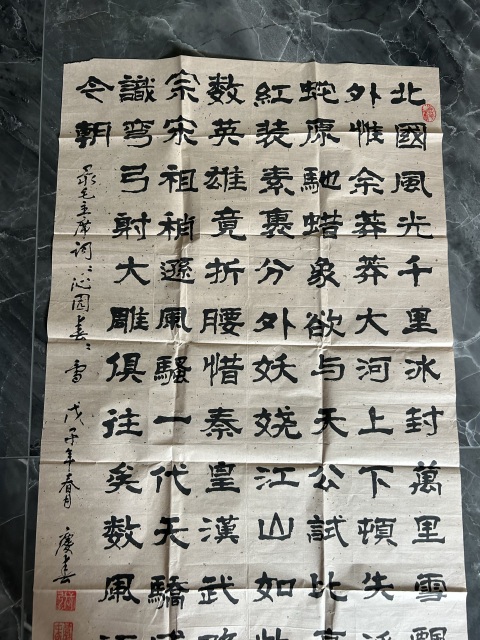 北國風光千里冰封萬里雪飄
外惟余莽莽大河上下頓失滔
蛇原馳蜡象欲与天公試比高
紅装素裹分外妖娆江山如此
数英雄竟折腰惜秦皇漢武略
宗宋祖稍遜風騷一代天驕成
識弯弓射大雕俱往矣数風流
今朝
录毛主席词:沁园春:雪 戊子年春月 庆春